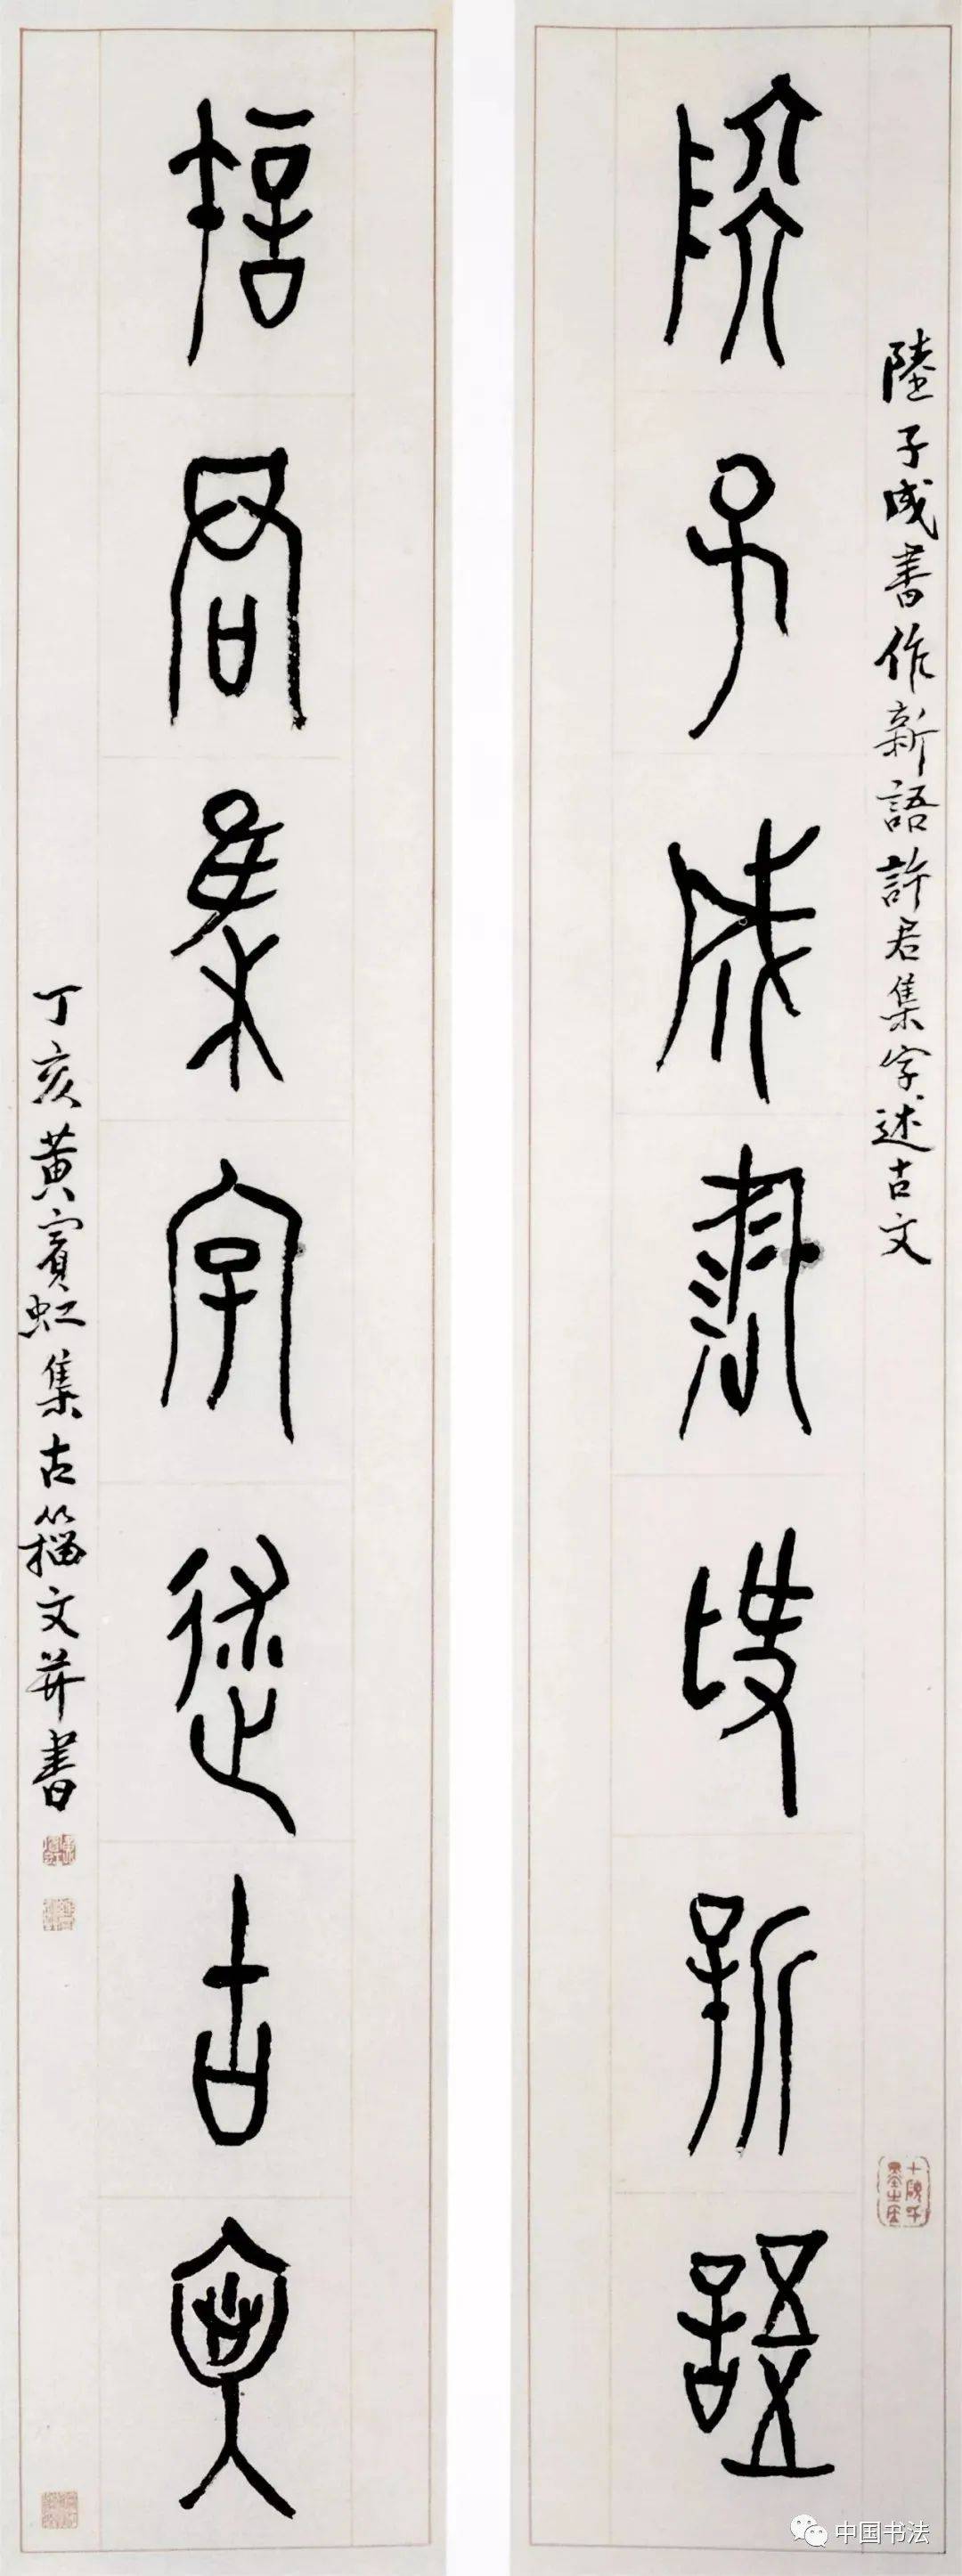 陸子成書作新語許君集字述古文
陸子成書作新語
許君集字述古文
丁亥黃賓虹集古籀文并書
中国书法